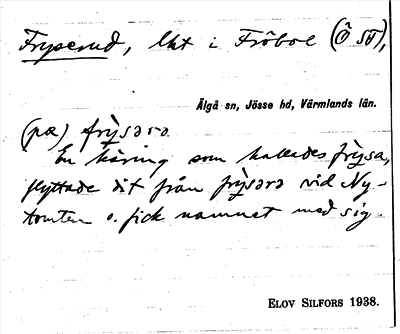 Fryserud, lht i Fröbol (Ö SO),
Älgå sn, Jösse hd, Värmlands län.
(pæ) frỳsərə
En käring som kallades frỳsa,
flyttade dit från frỳsərə vid Ny-
tomten o. fick namnet med sig.
ELOV SILFORS 1938.